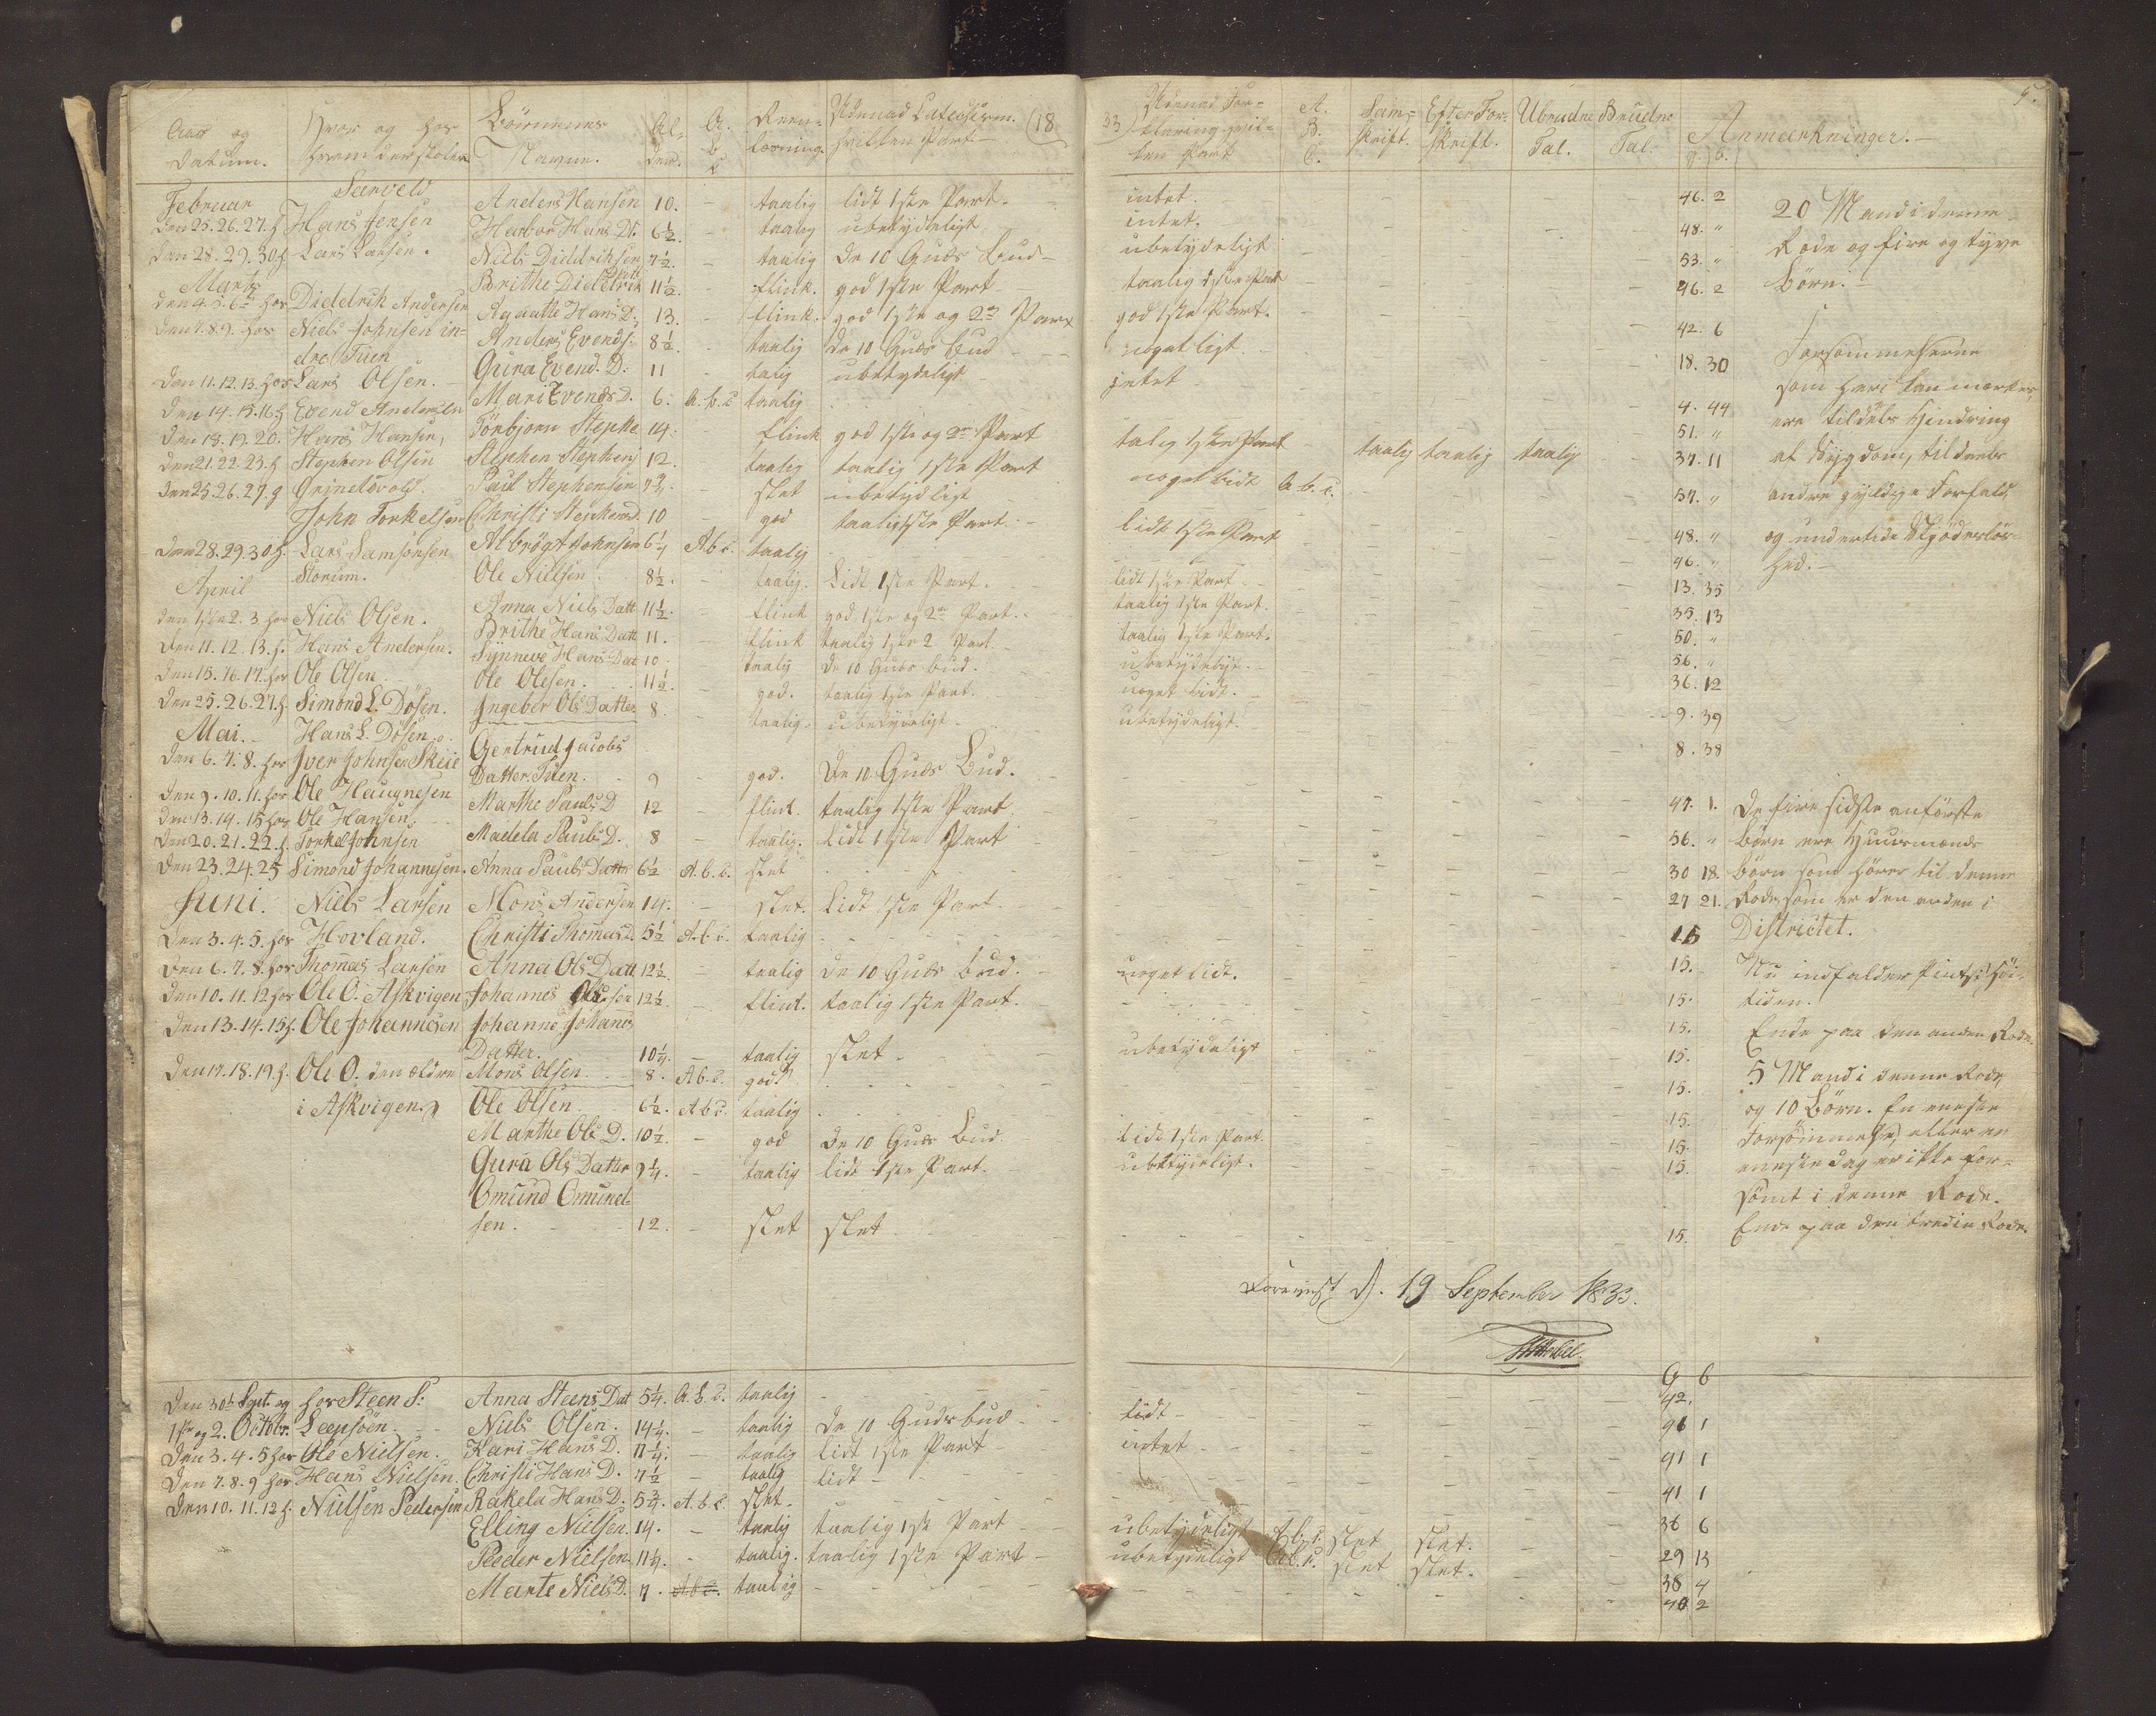 Aar og Datum. Hvor og hos hvem der skoles Börnenes Navne. Al- deren. A. b c Reen- læsning. Udenad Catechism. hvilken Part (18
33) Udenad For- klaring hvil- ken Part A. B. C. Sam- skrift. Efter For- skrift. Ubrudne Tal. Brudne Tal. Anmærkninger. 5.
Februar Sarvold Anders Hansen 10. - taalig lidt 1ste Part.
Den 25. 26. 27. h Hans Jensen Harbor Hans Dt. 6½. - taalig ubetydeligt
den 28. 29. 30 h. Lars Larsen. Niels Diderichsen 7½. - taalig De 10 Guds Bud
Marts Brithe Diderich 11½. - flink. god 1ste Part
den 4. 5. 6te hos Diderik Andersen Agaathe Hans D. 13. flink. god 1ste og 2den Part
Den 7. 8. 9. hos Niels Johnsen in- Anders Evends. 8½. taalig De 10 Guds Bud
dre Tuen Gura Evend. D. 11 talig ubetydeligt
Den 11. 12. 13. hos Lars Olsen. Mari Evends D. 6. A. b. c taalig
Den 14. 15. 16. h Evend Andersen Torbjorn Stephe 14. flink god 1ste og 2den Part
Den 18. 19. 20. Hans Hansen, Stephen Stephens 12. taalig taalig 1ste Part
den 21. 22. 23. h Stephen Olsen Paul Stephensen 7¾. slet ubetydligt
den 25. 26. 27. h Grinesvold. Christi Stephensd. 10 god taalig 1ste Part
John Torkelsen
Den 28. 29. 30 h. Lars Samsonsen Albrögt Johnsen 6¼ A.b.c. taalig
April Storum. Ole Nielsen 8½. taalig. Lidt 1ste Part.
den 1ste 2. 3 hos Niels Olsen. Anna Niels Datt 11½. flink god 1ste og 2en Part.
Den 11. 12. 13. h. Hans Andersen. Brithe Hans Datt 11. flink taalig 1ste 2 Part.
Den 15. 16. 17. hos Ole Olsen Synneve Hans Dat 10 taalig De 10 Guds bud.
Den 25. 26. 27. h. Simond L. Dösen. Ole Olesen. 11½. god. taalig 1ste Part.
Mai. Hans L. Dösen. Ingebor Ols Datter 8. taalig. ubetydeligt
Den 6. 7. 8. hos Iver Johnsen Skeie Gertrud Jacobs
Datter. Tuen. 9 god. De 10 Guds Bud.
Den 9. 10. 11. hos Ole Haugnesen Marthe Pauls D 12 flink. taalig 1ste Part
den 13. 14. 15 hos Ole Hansen. Madela Pauls D. 8 taalig. Lidt 1ste Part
Den 20. 21. 22. h. Torkel Johnsen
Den 23. 24. 25 Simond Johannesen. Anna Pauls Datter 6½ A. b. c. slet
Juni. Niels Larsen Mons Andersen 14. slet. Lidt 1ste Part.
Den 3. 4. 5. hos Hovland. Christi Thomasd. 5½ A. b. c. taalig
Den 6. 7. 8. hos Thomas Larsen Anna Ols Datt 12½. taalig De 10 Guds bud.
Den 10. 11. 12 hos Ole O. Askvigen Johannes Olesen 12½. flink. taalig 1ste Part.
Den 13. 14. 15 h. Ole Johannesen Johanne Johannes
Datter. 10¼. taalig slet
Den 17. 18. 19. h. Ole O. den ældre Mons Olsen. 8. A b. c. god
i Askvigen. Ole Olsen 6½. A b c. taalig
Marthe Ols D. 10½. god De 10 Guds Bud.
Gura Ols Datter 9¼. taalig lidt 1ste Part.
Omund Omund-
sen. 12. slet slet
Den 30te Sept. og hos Steen S. Anna Steens Dat 5¼. A. b. c. taalig
1ste og 2. Octobr. Leepsöen. Niels Olsen. 14¼. taalig De 10 Guds bud
Den 3. 4. 5 hos Ole Nielsen. Kari Hans D. 11¼. taalig lidt 1ste Part
Den 7. 8. 9 hos Hans Nielsen. Christi Hans D. 7½ taalig lidt
Den 10. 11. 12 h. Nielsen Pedersen Rakela Hans D. 5¾. A. b. c. slet.
Elling Nielsen. 14. - taalig taalig 1ste Part
Peeder Nielsen. 11½. - taalig. taalig 1ste Part
Marte Niels D. 7. A b c. taalig
intet. 46. 2
intet. 48. "
ubetydeligt 53. "
taalig 1ste Part 46. 2
god 1ste Part. 42. 6
noget ligt. 18. 30
intet 4. 44
51. "
talig 1ste Part taalig taalig taalig 37. 11
noget lidt A. b. c. 57. "
lidt 1ste Part 48. "
46. "
lidt 1ste Part 13. 35
taalig 1ste Part. 35. 13
taalig 1ste Part. 50. "
ubetydeligt. 56. "
noget lidt. 36. 12
ubetydeligt. 9. 39
8. 38
47. 1.
56. "
30 18.
27 21.
15
noget lidt. 15.
15.
15.
ubetydeligt 15.
15.
15.
lidt 1ste Part. 15.
ubetydeligt. 15.
15.
20 Mand i denne
Rode og fire og tyve
Börn.
Forsömmelserne
som heri bemærkes,
ere tildels Hindring
af Sygdom, tildeels
andre gyldige Forfald,
og undertide Skjödeslös-
hed.
De fire sidste anförste
börn ere Huusmænds
börn som hörer til denne
Rode, som er den anden i
Districtet.
Nu indfalder Pintsi
tiden.
Ende paa den anden Rode.
5 Mand i denne Rode
og 10 Börn. En eneste
Forsömmelse, eller en
eneste dag er ikke for-
sömt i denne Rode.
Ende paa den tredie Rode.
Foreviist d. 19 September 1833.
G b
42.
lidt 96 1
intet 91 1
41 1
36 6
ubetydeligt A. b. c. slet slet. 29 13
ubetydeligt A. b. c. slet slet. 38 4
40 2